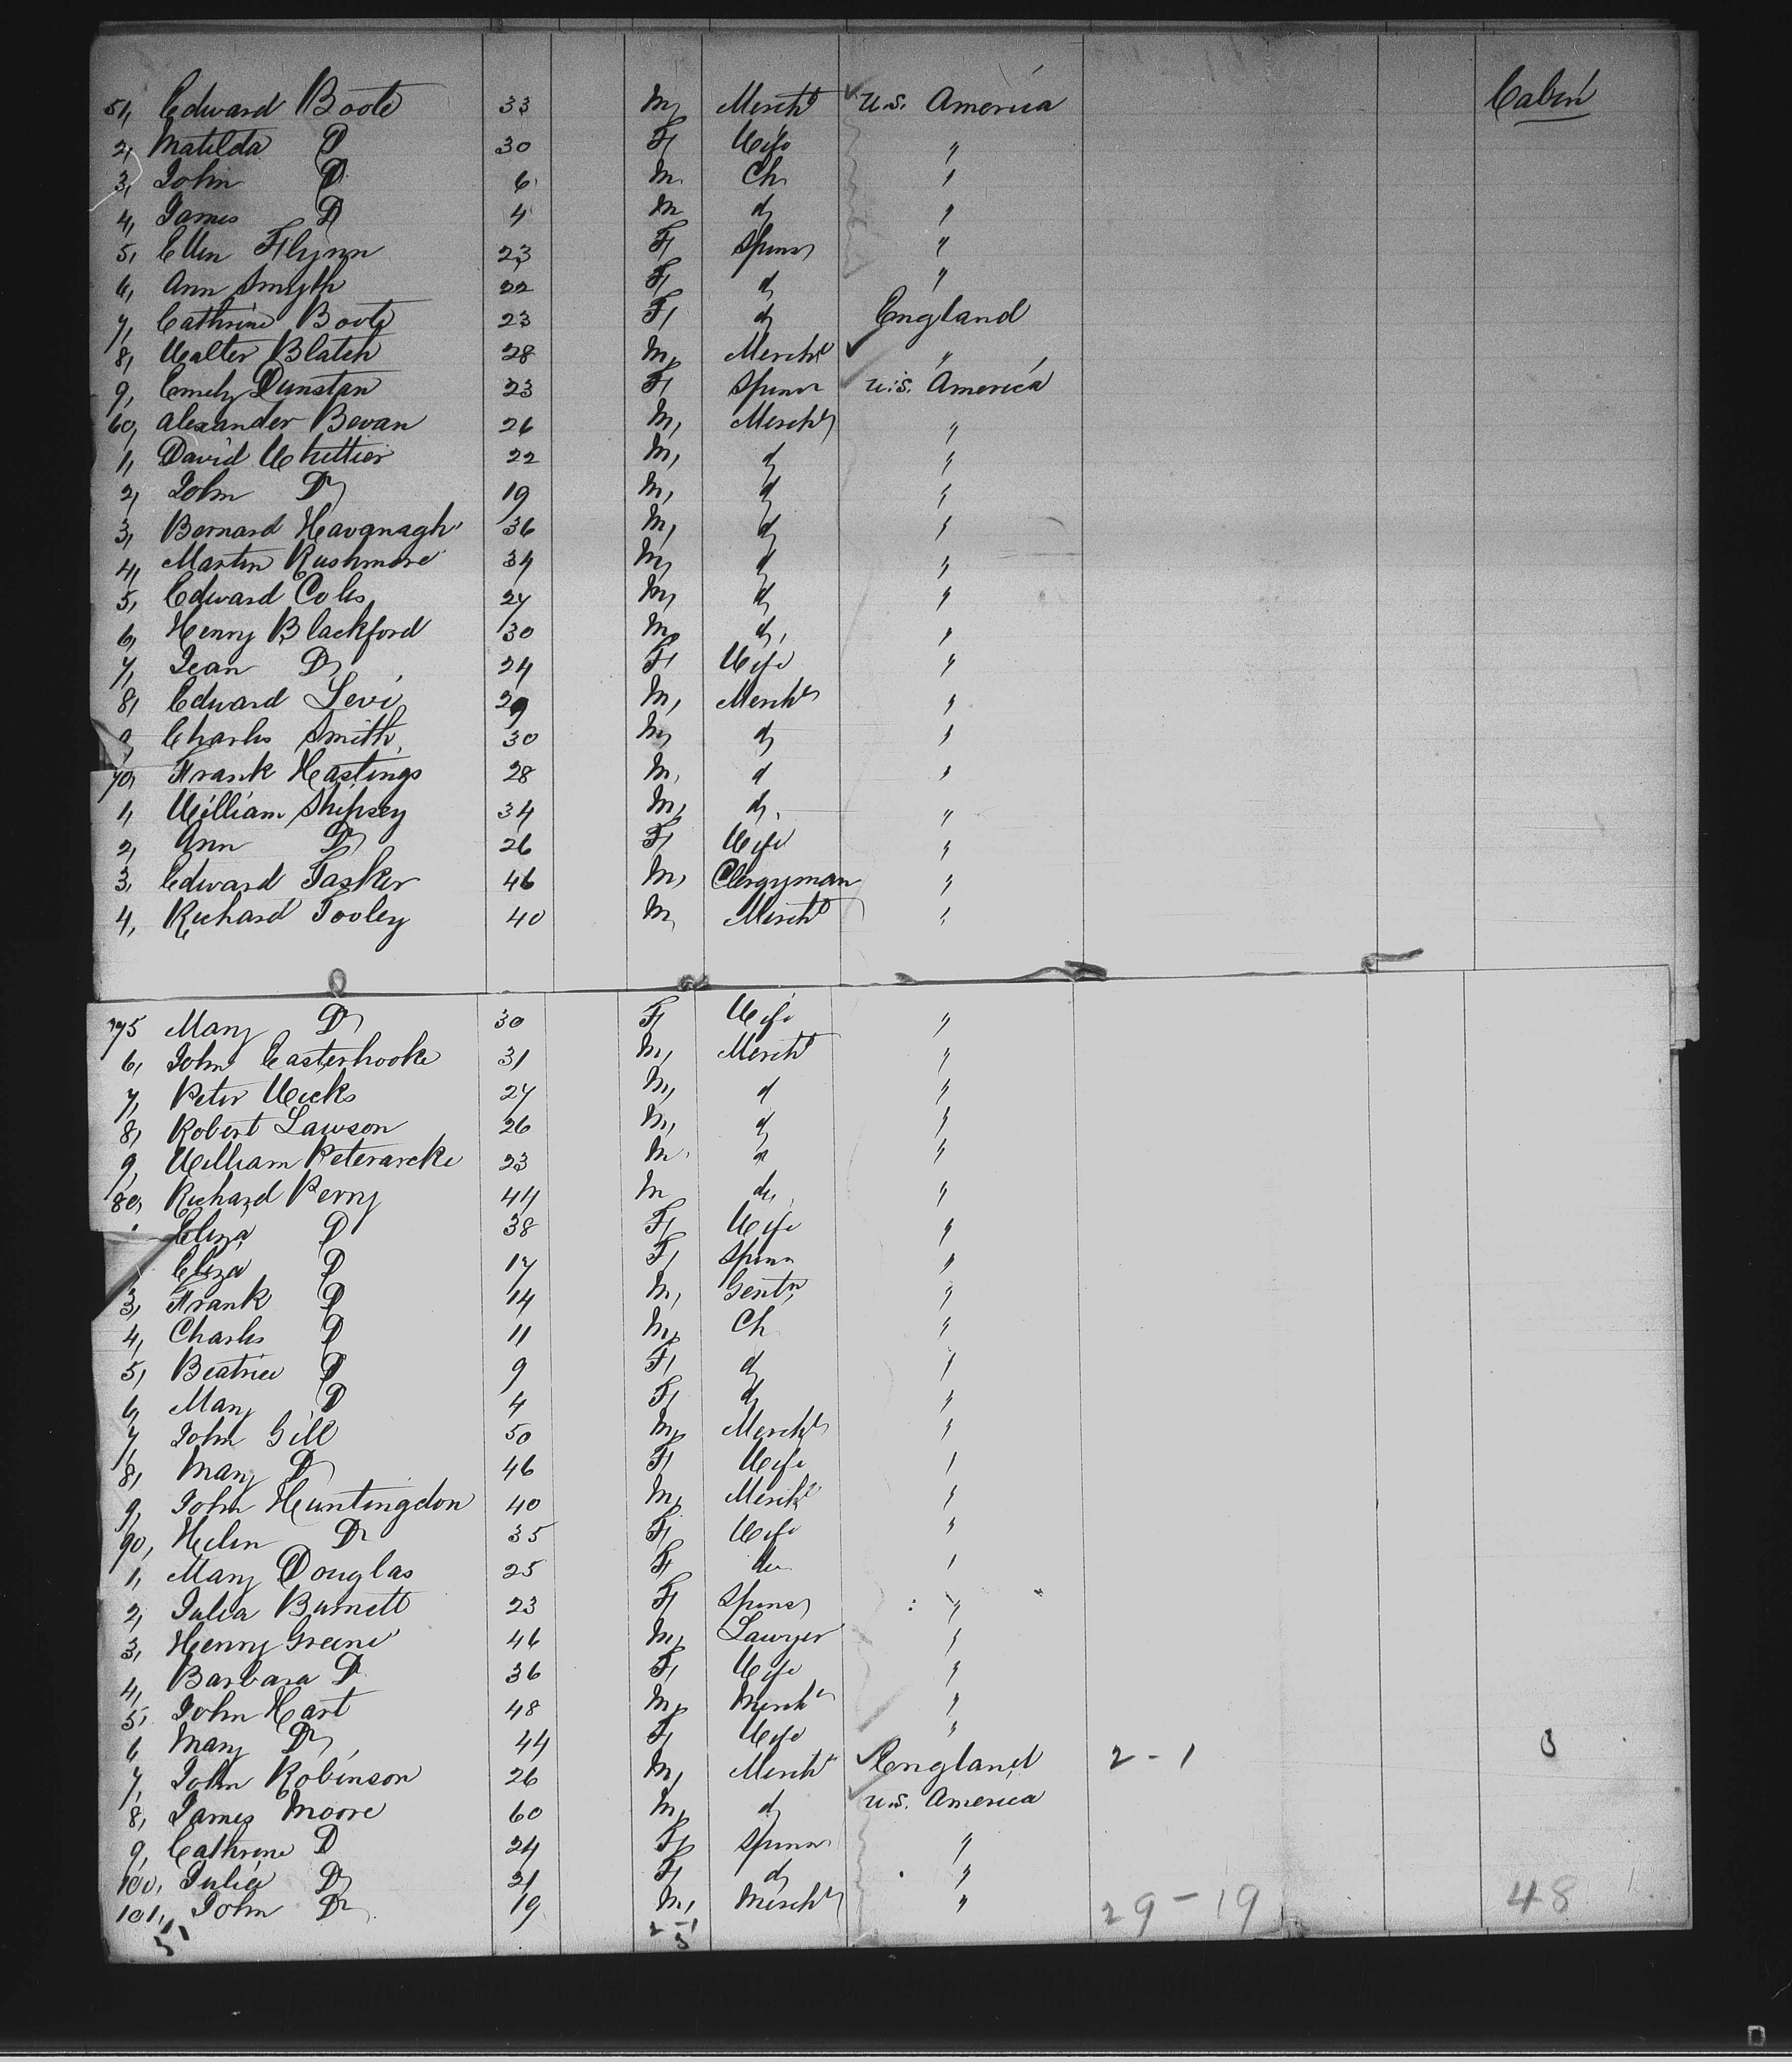 51, Edward Boote 33 M, Mercht U.S. America Cabin
2, Matilda D 30 F, Wife "
3, John D 6 M. Ch "
4, James D 4 M d "
5, Ellen Flynn 23 F, Spinr "
6, Ann Smyth 22 F, d "
7, Cathrine Boote 23 F, d England
8, Walter Blatch 28 M, Mercht "
9, Emely Dunstan 23 F, Spinr U.S. America
60, Alexander Bevan 26 M, Mercht "
1, David Whittier 22 M, d "
2, John D 19 M, d "
3, Bernard Kavanagh 36 M, d "
4, Martin Rushmore 34 M, d "
5, Edward Coles 27 M, d "
6, Henry Blackford 30 M, d, "
7, Jean D 24 F, Wife "
8, Edward Levi 29 M, Mercht "
9, Charles Smith 30 M, d "
70, Frank Hastings 28 M, d "
1, William Shipsey 34 M, d, "
2, Ann D 26 F, Wife "
3, Edward Tasker 46 M, Clergyman "
4, Richard Tooley 40 M, Mercht "
75 Mary D 30 F, Wife "
6, John Easterbrooke 31 M, Mercht "
7, Peter Weeks 27 M, d "
8, Robert Lawson 26 M, d "
9, William 23 M. d "
80, Richard Perry 44 M d, "
Eliza D 38 F, Wife "
Eliza D 17 F, Spinr "
3, Frank D 14 M, Gentn "
4, Charles D 11 M, Ch "
5, Beatrice D 9 F, d "
6, Mary D 4 F, d "
7, John Gill 50 M, Mercht "
8, Mary D 46 F, Wife "
9, John Huntingdon 40 M, Mercht "
90, Helen D 35 F, Wife "
1, Mary Douglas 25 F, do "
2, Julia Burnett 23 F, Spinr "
3, Henry Greene 46 M, Lawyer "
4, Barbara D 36 F, Wife "
5, John Hart 48 M, Mercht "
6, Mary D 44 F, Wife "
7, John Robinson 26 M, Mercht England 2-1 3
8, James Moore 60 M, d U.S. America
9, Cathrine D 24 F, Spinr "
100, Julia D 21 F, d "
101, John D 19 M, Mercht " 29-19 48
51 2-1
3